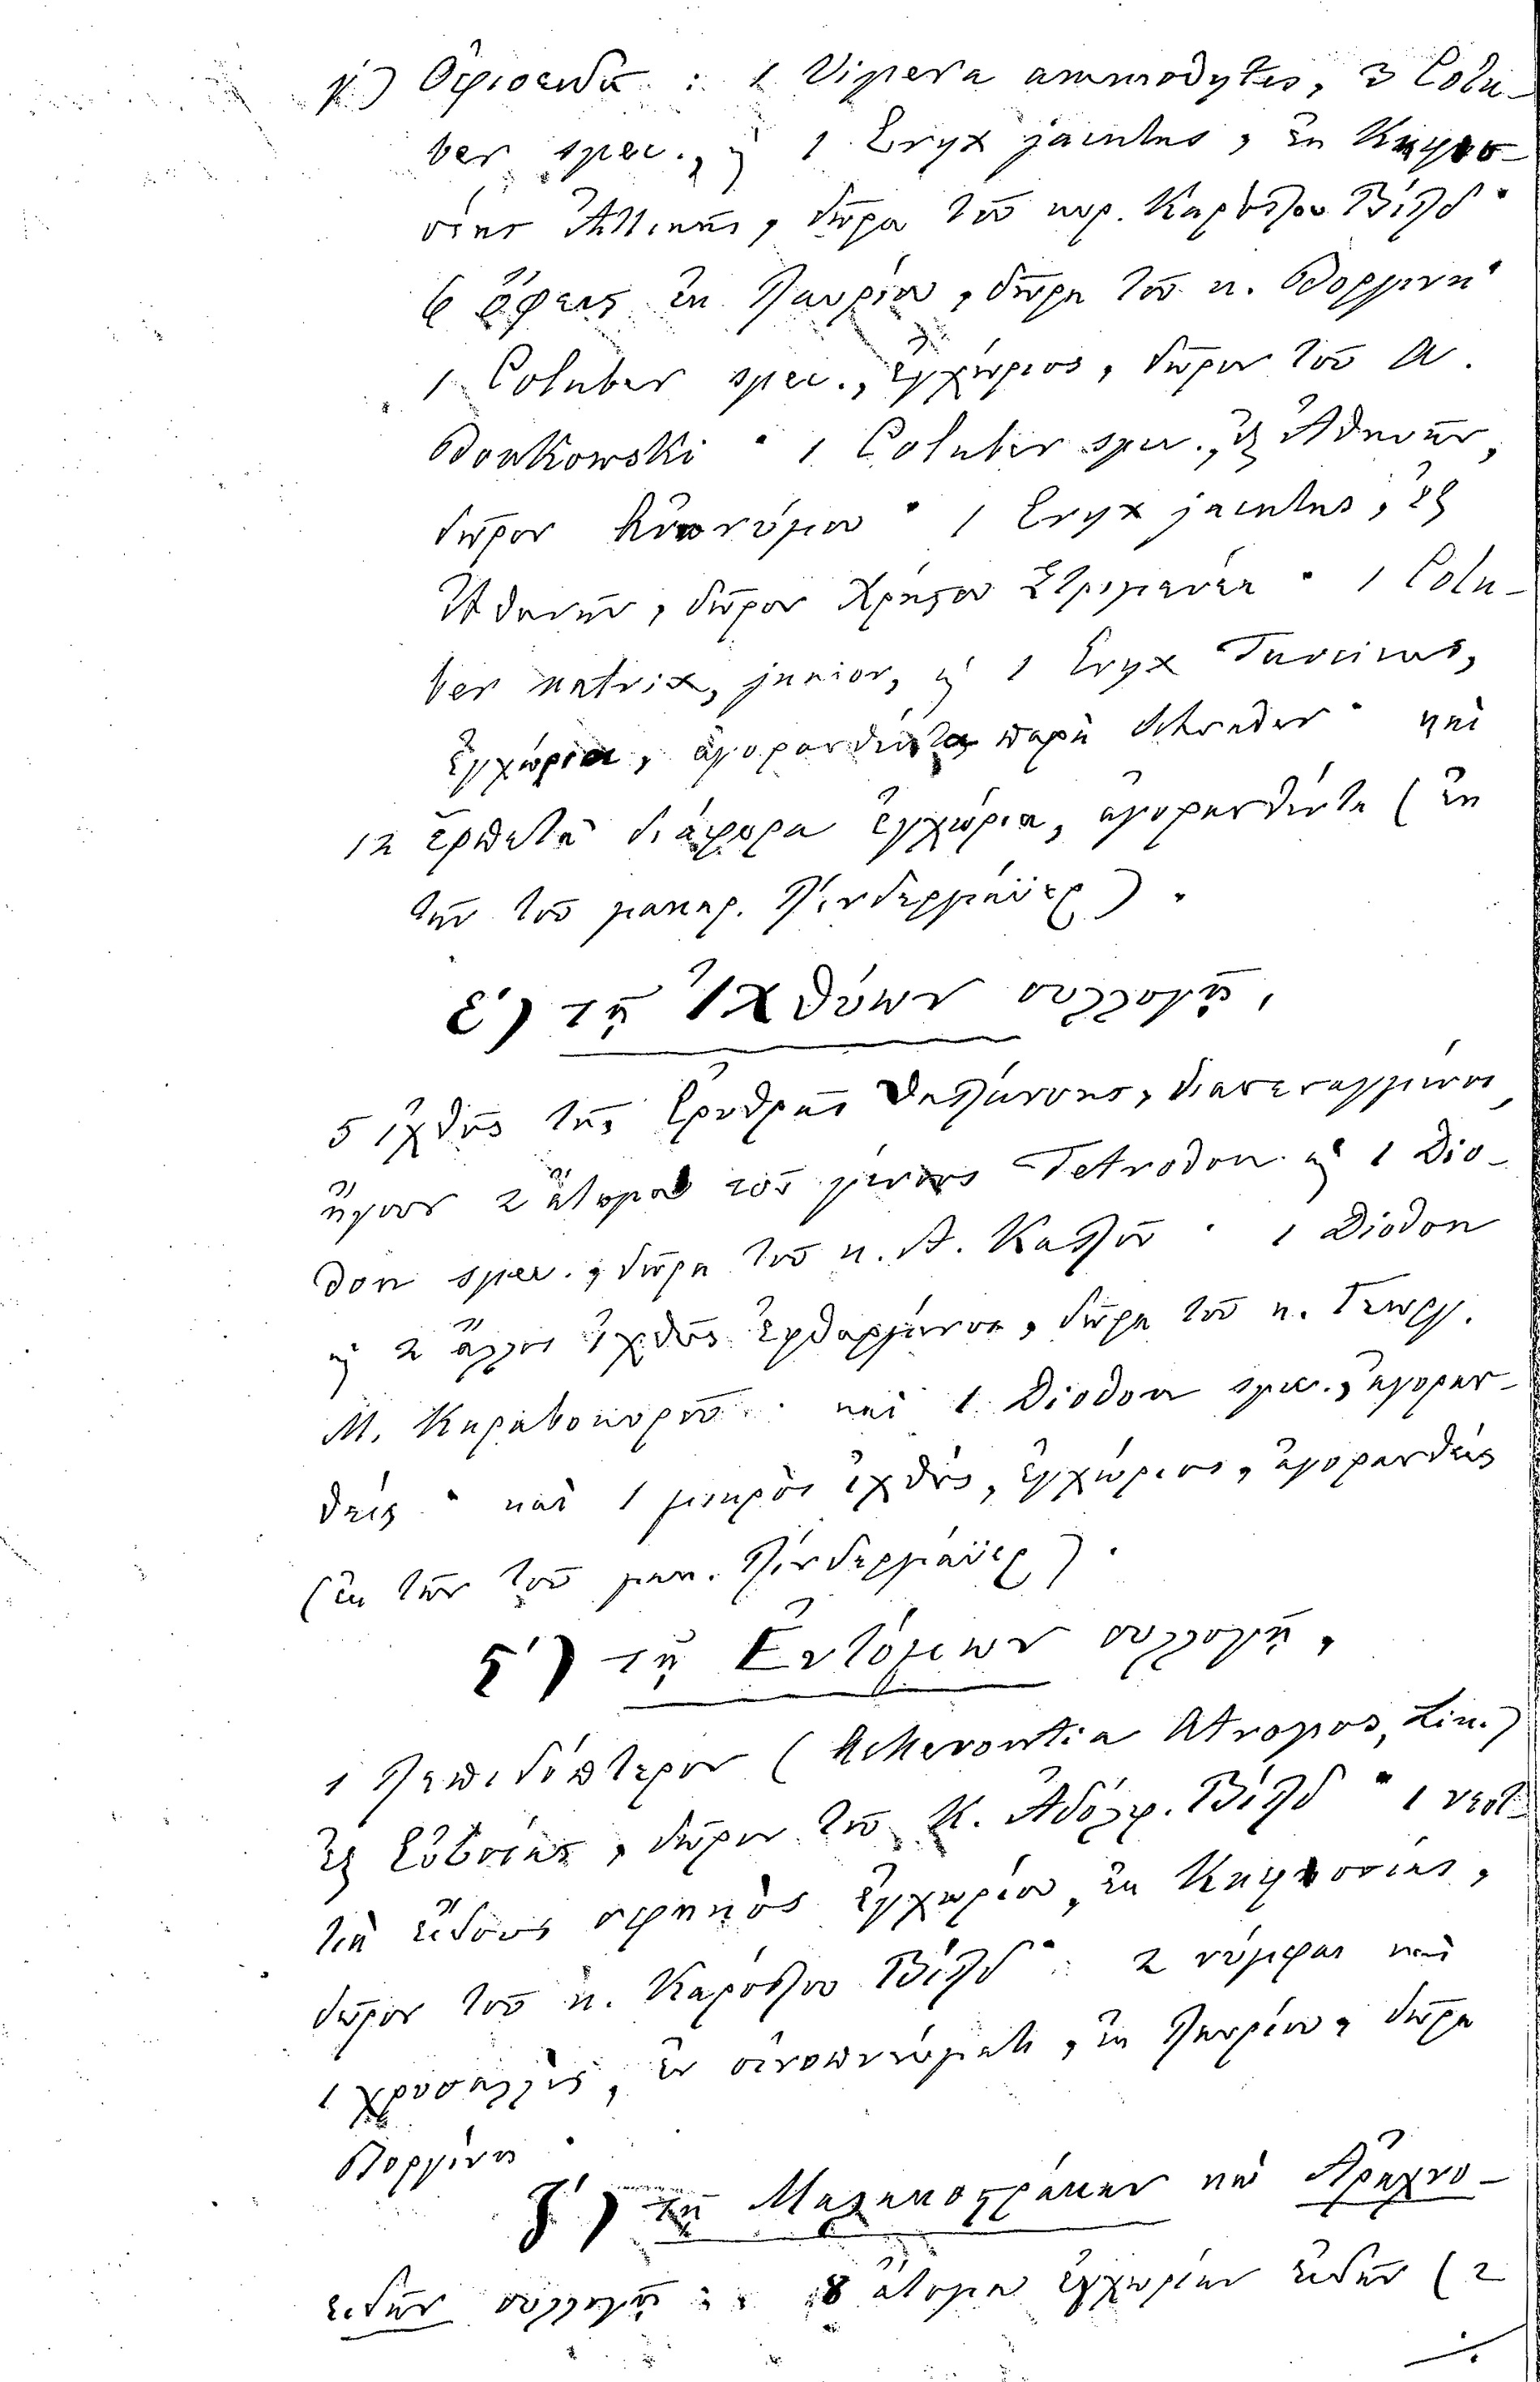 γ′) Ὀφιοειδῆ : 1 Vipera ammodytes, 3 Colu-
ber spec., ϗ 1 Eryx jaculus, ἐκ Κηφισ-
σίας Ἀττικῆς, δῶρα τοῦ κυρ. Καρόλου Βίλδ·
6 ὄφεις ἐκ Λαυρίου, δῶρα τοῦ κ.
1 Coluber spec., ἐγχώριος, δῶρον τοῦ A.
Bonkowski · 1 Coluber spec., ἐξ Ἀθηνῶν,
δῶρον ἀνωνύμου · 1 Eryx jaculus, ἐξ
Ἀθηνῶν, δῶρον Χρήστου · 1 Colu-
ber natrix, junior, ϗ 1 Eryx Turcicus,
ἐγχώρια, ἀγορασθέντα παρὰ Schrader · καὶ
12 ἑρπετὰ διάφορα ἐγχώρια, ἀγορασθέντα (ἐκ
τῶν τοῦ μακαρ. Λίνδερμάϋερ).
ε′) τῇ Ἰχθύων συλλογῇ,
5 ἰχθῦς τῆς Ἐρυθρᾶς θαλάσσης,
ἤγουν 2 ἄτομα τοῦ γένους Tetrodon ϗ 1 Dio-
don spec., δῶρα τοῦ κ. Α. Καλλοῦ · 1 Diodon
ϗ 2 ἄλλοι ἰχθῦς ἐφθαρμένοι, δῶρα τοῦ κ. Γεωργ.
Μ. Καραβοκυροῦ · καὶ 1 Diodon spec., ἀγορασ-
θείς · καὶ 1 μικρὸς ἰχθύς, ἐγχώριος, ἀγορασθεὶς
(ἐκ τῶν τοῦ μακ. Λίνδερμάϋερ).
ϛ′) τῇ Ἐντόμων συλλογῇ,
1 Λεπιδόπτερον (Acherontia Atropos, Lin.)
ἐξ Εὐβοίας, δῶρον τοῦ Κ. Ἀδόλφ. Βίλδ · 1 νεοτ-
τιὰ εἴδους σφηκὸς ἐγχωρίου, ἐκ Κηφισσίας,
δῶρον τοῦ κ. Καρόλου Βίλδ · 2 νύμφαι καὶ
1 χρυσαλλίς, ἐν οἰνοπνεύματι, ἐκ Λαυρίου, δῶρα

ζ′) τῇ Μαλακοστράκων καὶ Ἀραχνο-
ειδῶν συλλογῇ : 8 ἄτομα ἐγχωρίων εἰδῶν (2